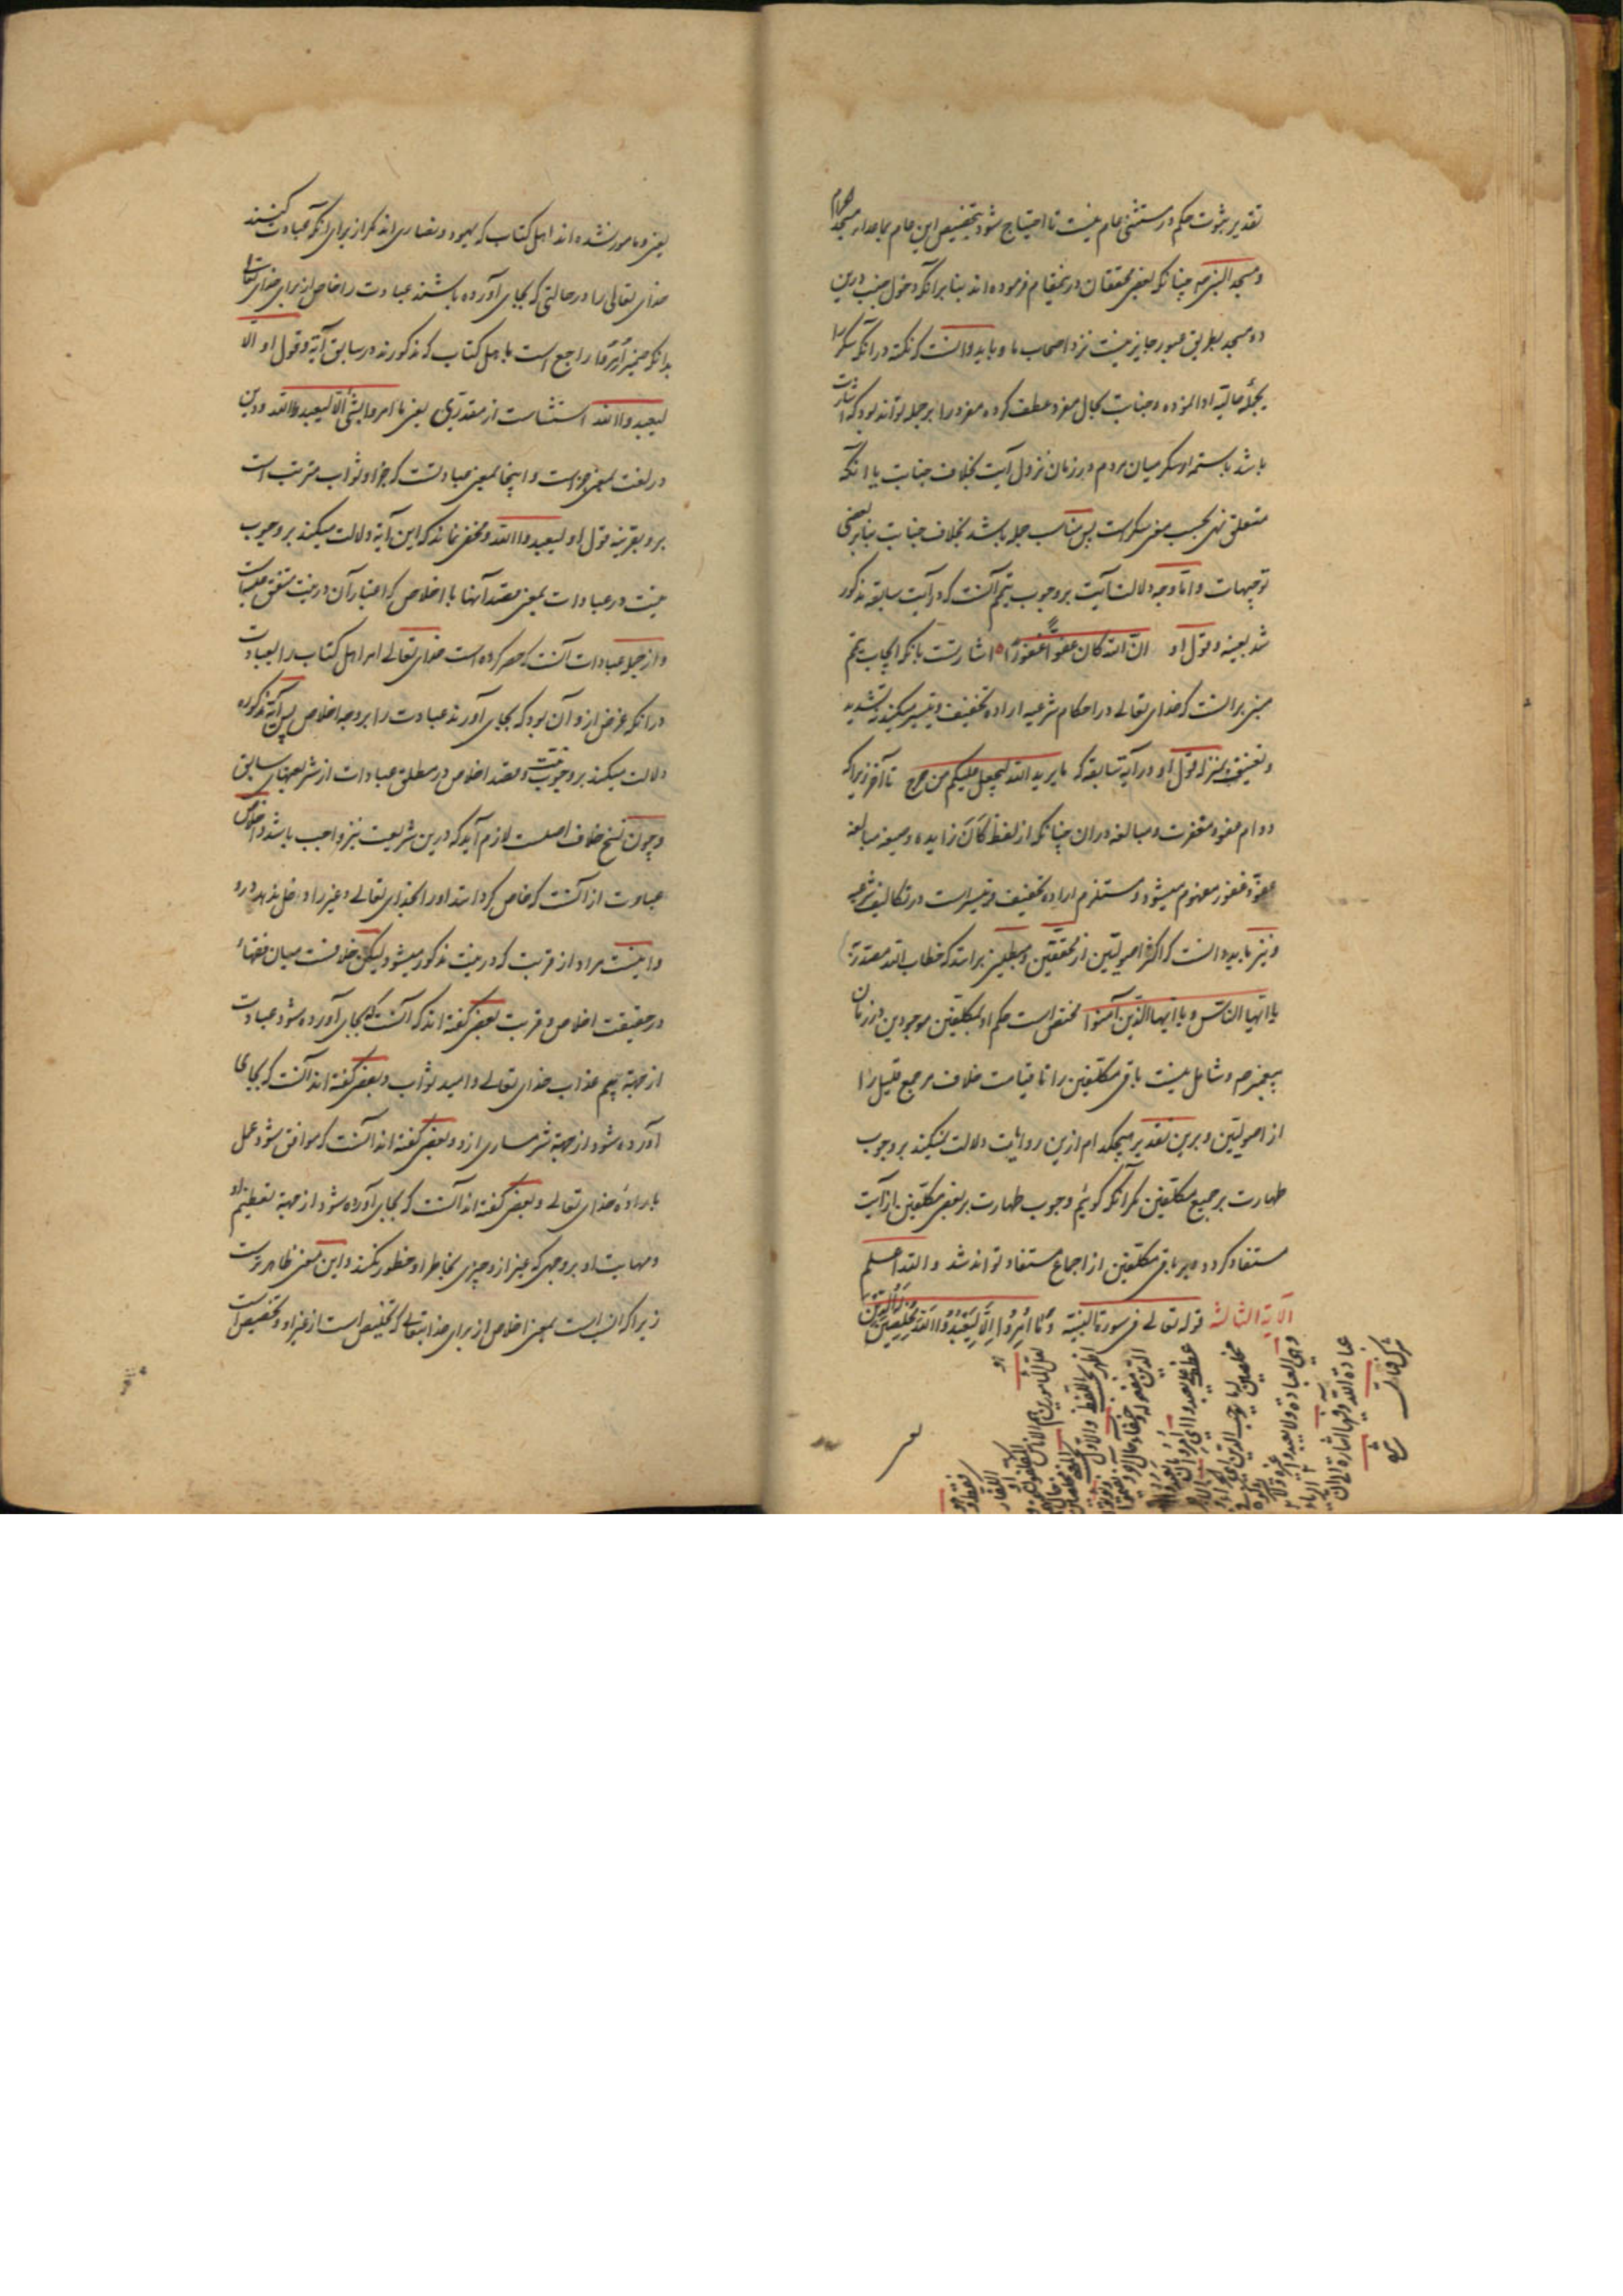 تقدیر ثبوت حکم در مستثنی عام نیست تا احتیاج شود بتخصیص این عام بماعدای مسجد الحرام
و مسجد النبی صم چنانکه بعضی محققان درینمقام فرموده اند بنا برآنکه دخول جنب درین
دو مسجد بطریق عبور جایز نیست نزد اصحاب ما و باید دانست که نکته در آنکه سکر را
بجملهٔ حالیه ادا نموده و جنابت بحال مفرد عطف کرده مفرد را بر جمله تواند بود که اشارت
باشد باستمرار سکر میان مردم در زمان نزول آیت بخلاف جنابت یا آنکه
متعلق نهی بحسب معنی سکر است پس مناسب جمله باشد بخلاف جنابت بنا بر بعضی
توجیهات و اما وجه دلالت آیت بر وجوب تیمم آنست که در آیت سابقه مذکور
شد بعینه و قول او ان الله کان عفوا غفورا اشارتست بآنکه ایجاب تیمم
مبنی بر آنست که خدای تعالی در احکام شرعیه اراده تخفیف و تیسیر میکند نه تشدید
و تعنیف بمنزله قول او در آیه سابقه که ما یرید الله لیجعل علیکم من حرج تا آخر زیرا که
دوام عفو و مغفرت و مبالغه در آن چنانکه از لفظ کان زایده و صیغه مبالغه
عفو و غفور مفهوم میشود و مستلزم اراده تخفیف و تیسیر است در تکالیف شرعیه
و نیز باید دانست که اکثر اصولیین از محققین و مبطلین برانند که خطاب الله مصدر
یا ایها الناس و یا ایها الذین آمنوا مختص است حکم او بمکلفین موجودین در زمان
پیغمبر صم و شامل نیست باقی مکلفین را تا قیامت خلاف مر جمع قلیل را
از اصولیین و برین تقدیر هیچکدام ازین روایات دلالت نمیکند بر وجوب
طهارت بر جمیع مکلفین مگر آنکه گوئیم وجوب طهارت بر بعض مکلفین از آیت
مستفاد گردد و بر باقی مکلفین از اجماع مستفاد تواند شد والله اعلم
الآیة الثالثة قوله تعالی فی سورة البینه وَمَا أُمِرُوا إِلَّا لِیَعْبُدُوا اللهَ مُخْلِصِینَ لَهُ الدِّینَ
یعنی و مامور نشده اند اهل کتاب که یهود و نصاری اند مگر از برای آنکه عبادت کنند
خدای تعالی را در حالتی که بجای آورده باشند عبادت را خاص از برای خدای تعالی
بدانکه ضمیر اُمِرُوا راجع است باهل کتاب که مذکورند در سابق آیة و قول او الا
لیعبدوا الله استثناست از مقدری یعنی ما امروا بشئ الا لیعبدوا الله و دین
در لغت بمعنی جزاست و اینجا بمعنی عبادتست که جزا و ثواب مترتب است
برو بقرینه قول او لیعبدوا الله و مخفی نماند که این آیه دلالت میکند بر وجوب
نیت در عبادات بمعنی قصد آنها با اخلاص که اعتبار آن در نیت متفق علیهاست
و از جمله عبادات آنست که حصر کرده است خدای تعالی امر اهل کتاب را بعبادت
در آنکه غرض ازو آن بود که بجای آورند عبادت را بر وجه اخلاص پس آیه مذکوره
دلالت میکند بر وجوب نیت و قصد اخلاص در مطلق عبادات از شریعتهای سابق
و چون نسخ خلاف اصلست لازم آید که درین شریعت نیز واجب باشد و اخلاص
عبادت از آنست که خاص گرداند او را بخدای تعالی و غیر را دخل ندهد درو
و اینست مراد از قربت که در نیت مذکور میشود لیکن خلافست میان فقهاء
در حقیقت اخلاص و قربت بعضی گفته اند که آنست که بجای آورده شود عبادت
از جهة بیم عذاب خدای تعالی و امید ثواب و بعضی گفته اند آنست که بجای
آورده شود از جهة شرمساری ازو و بعضی گفته اند آنست که موافق شود عمل
باراده خدای تعالی و بعضی گفته اند آنست که بجای آورده شود از جهة تعظیم او
و مهابت او بر وجهی که غیر ازو چیزی بخاطر او خطور نکند و این معنی ظاهرترست
زیرا که انسب است بمعنی اخلاص از برای خدایتعالی که تخلیص است از غیر او و تخصیص است